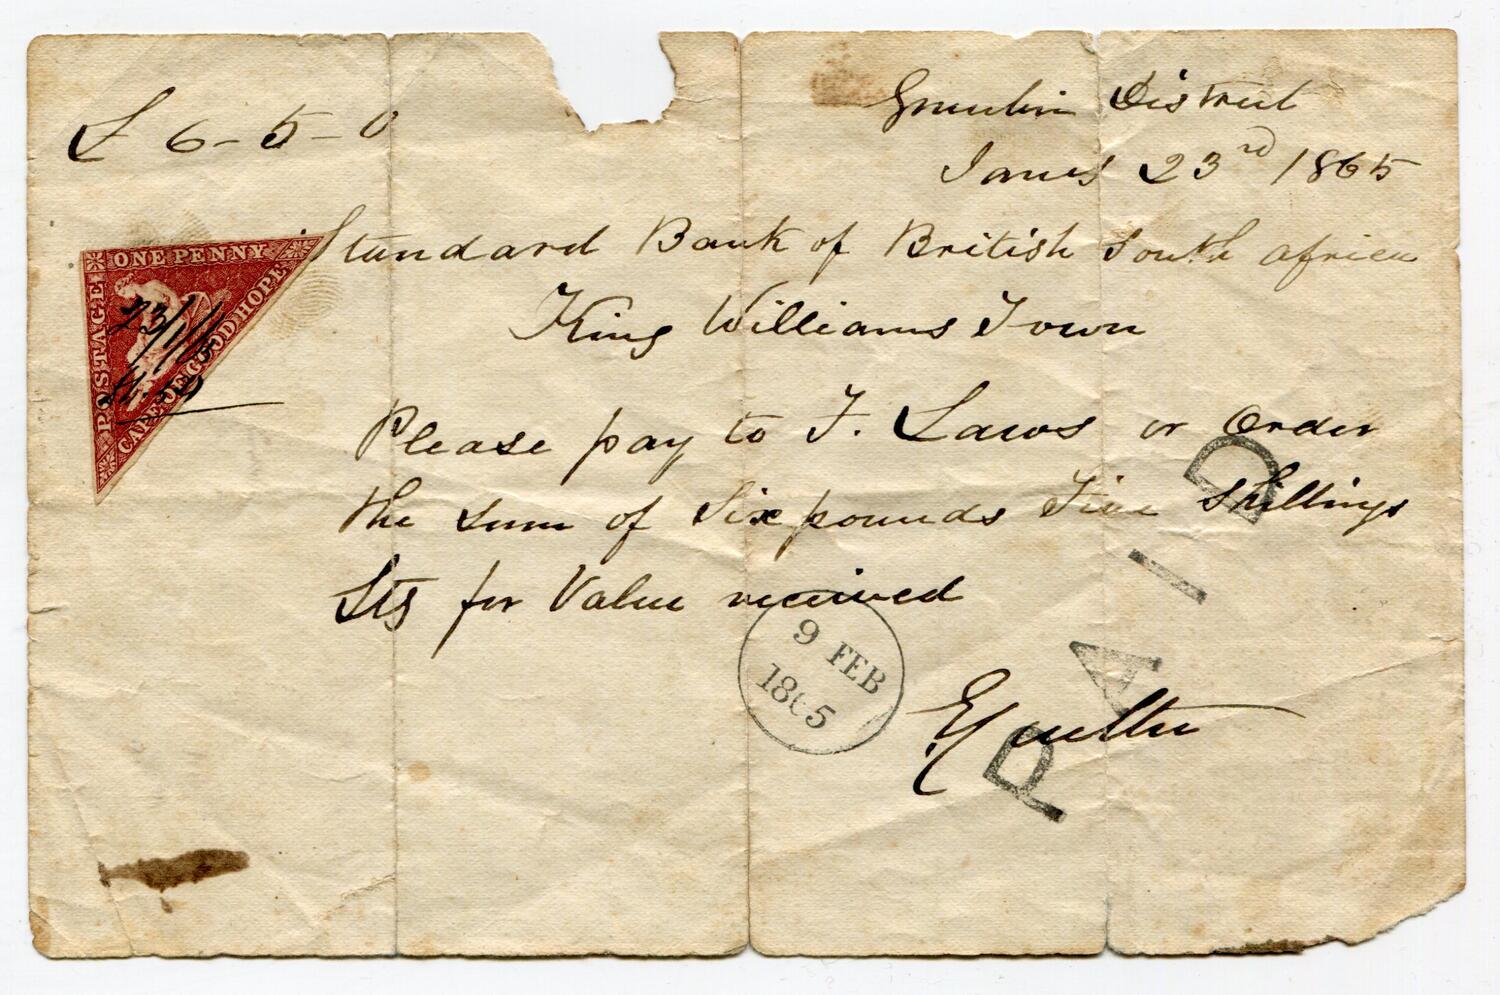 £ 6-5-0
District
Jany 23rd 1865
Standard Bank of British South Africa
King Williams Town
ONE PENNY
POSTAGE
CAPE OF GOOD HOPE
23/1/65
Please pay to F. Laws or Order
the sum of Six pounds Five Shillings
Stg for Value received
9 FEB
1865
PAID